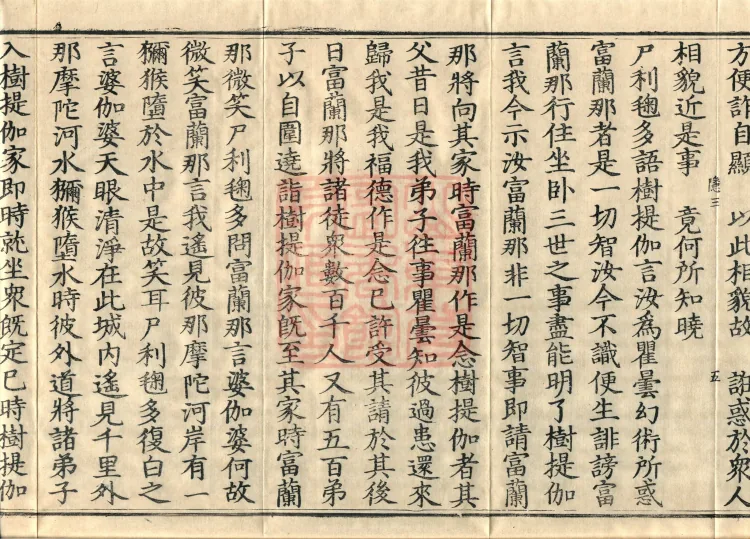 方便詐自顯 以此相貌故 誑惑於眾人
隱三 五
相貌近是事 竟何所知曉
尸利毱多語樹提伽言汝為瞿曇幻術所惑
富蘭那者是一切智汝今不識便生誹謗富
蘭那行住坐卧三世之事盡能明了樹提伽
言我今示汝富蘭那非一切智事即請富蘭
那將向其家時富蘭那作是念樹提伽者其
父昔日是我弟子往事瞿曇知彼過患還來
歸我是我福德作是念已許受其請於其後
日富蘭那將諸徒眾數百千人又有五百弟
子以自圍遶詣樹提伽家既至其家時富蘭
那微笑尸利毱多問富蘭那言婆伽婆何故
微笑富蘭那言我遙見彼那摩陀河岸有一
獼猴墮於水中是故笑耳尸利毱多復白之
言婆伽婆天眼清淨在此城內遙見千里外
那摩陀河水獼猴墮水時彼外道將諸弟子
入樹提伽家即時就坐眾既定已時樹提伽